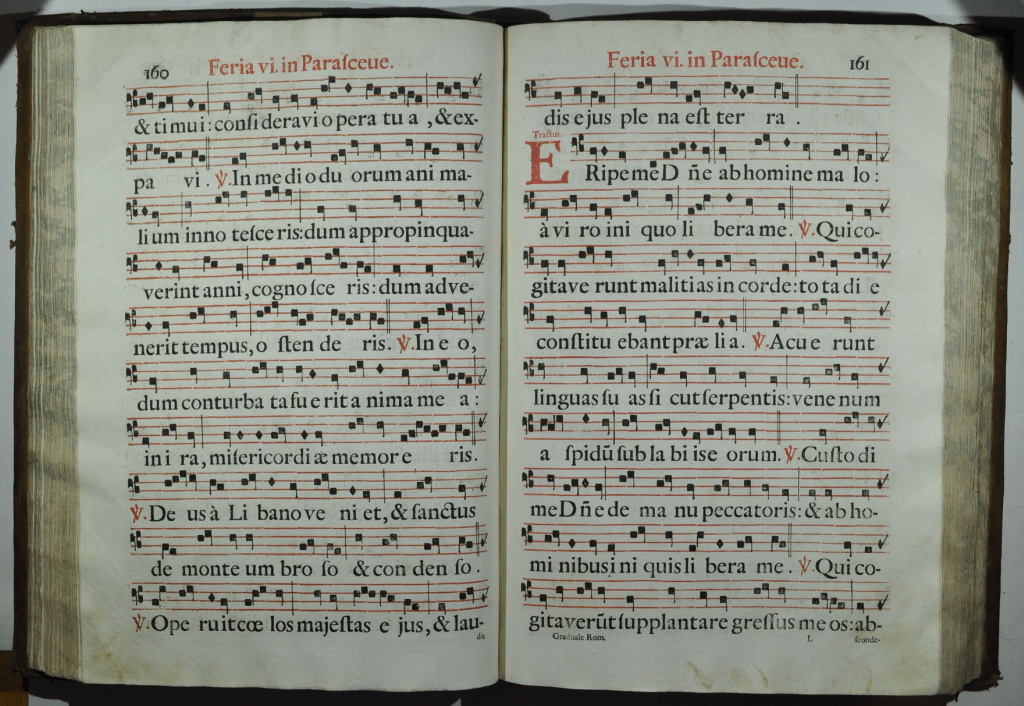 160 Feria vi. in Paraſceue.
& timui: conſi deravi o pera tu a , & ex-
pa vi . ℣. In me di o du orum ani ma-
li um inno teſce ris: dum appropinqua-
verint anni, cogno ſce ris: dum adve-
nerit tempus, o ſten de ris. ℣. In e o,
dum conturba ta fu e rit a nima me a :
in i ra, miſericordi æ memor e ris.
℣. De us à Li bano ve ni et, & ſanctus
de monte um bro ſo & con den ſo .
℣. Ope ruit cœ los majeſtas e jus, & lau-
dis
Feria vi. in Paraſceue. 161
dis ejus ple na eſt ter ra .
Tractus.
E Ripe mē D ñe ab homine ma lo :
à vi ro ini quo li bera me. ℣. Qui co-
gitave runt malitias in corde: to ta di e
conſtitu ebant præ li a. ℣. Acu e runt
linguas ſu as ſi cut ſerpentis: vene num
a ſpidū ſub la bi is e orum. ℣. Cuſto di
me D ñe de ma nu peccatoris: & ab ho-
mi nibus ini quis li bera me . ℣. Qui co-
gitaverūt ſupplantare greſſus me os: ab-
Graduale Rom. L ſconde-